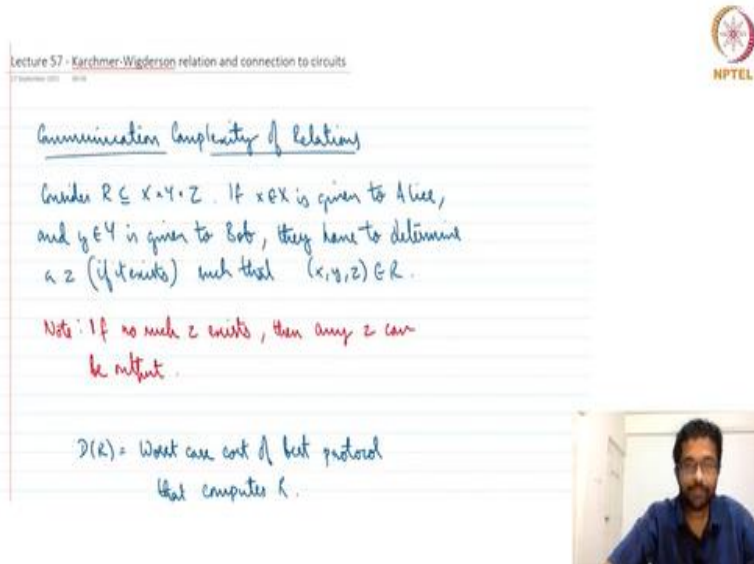 NPTEL
Lecture 57 - Karchmer-Wigderson relation and connection to circuits
Communication Complexity of Relations
Consider R ⊆ X × Y × Z. If x ∈ X is given to Alice,
and y ∈ Y is given to Bob, they have to determine
a z (if it exists) such that (x, y, z) ∈ R.
Note: If no such z exists, then any z can
be output.
D(R) = Worst case cost of best protocol
that computes R.